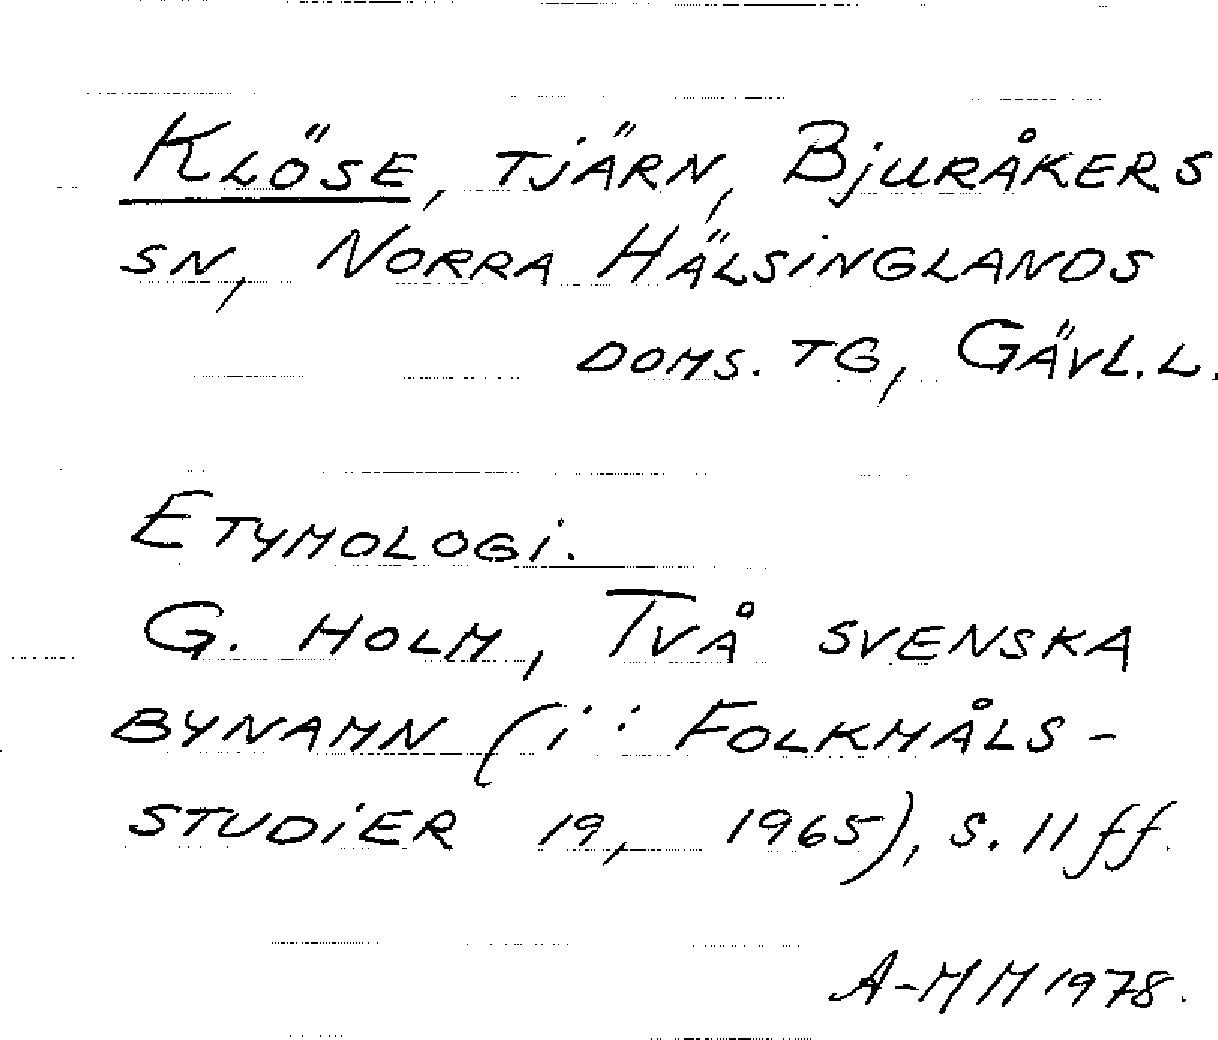 Klöse, tjärn, Bjuråkers
sn, Norra Hälsinglands
doms. tg, Gävl.l.
Etymologi.
G. Holm, Två svenska
bynamn (i: Folkmåls-
studier 19, 1965), s. 11 ff.
A-MM 1978.